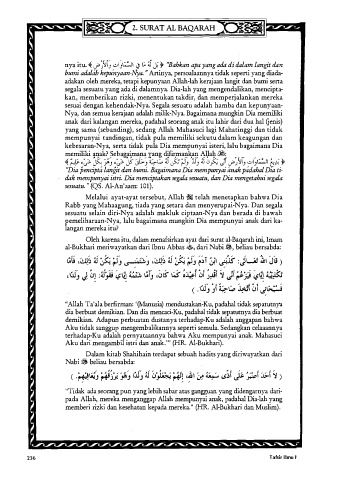 2. SURAT AL BAQARAH
nya itu. ﴿ بَل لَّهُ مَا فِي السَّمَاوَاتِ وَالْأَرْضِ ﴾ "Bahkan apa yang ada di dalam langit dan
bumi adalah kepunyaan-Nya." Artinya, persoalannya tidak seperti yang diada-
adakan oleh mereka, tetapi kepunyaan Allah-lah kerajaan langit dan bumi serta
segala sesuatu yang ada di dalamnya. Dia-lah yang mengendalikan, mencipta-
kan, memberikan rizki, menentukan takdir, dan memperjalankan mereka
sesuai dengan kehendak-Nya. Segala sesuatu adalah hamba dan kepunyaan-
Nya, dan semua kerajaan adalah milik-Nya. Bagaimana mungkin Dia memiliki
anak dari kalangan mereka, padahal seorang anak itu lahir dari dua hal (jenis)
yang sama (sebanding), sedang Allah Mahasuci lagi Mahatinggi dan tidak
mempunyai tandingan, tidak pula memiliki sekutu dalam keagungan dan
kebesaran-Nya, serta tidak pula Dia mempunyai isteri, lalu bagaimana Dia
memiliki anak? Sebagaimana yang difirmankan Allah ﷻ:
﴿ بَدِيعُ السَّمَاوَاتِ وَالْأَرْضِ أَنَّى يَكُونُ لَهُ وَلَدٌ وَلَمْ تَكُن لَّهُ صَاحِبَةٌ وَخَلَقَ كُلَّ شَيْءٍ وَهُوَ بِكُلِّ شَيْءٍ عَلِيمٌ ﴾
"Dia pencipta langit dan bumi. Bagaimana Dia mempunyai anak padahal Dia ti-
dak mempunyai istri. Dia menciptakan segala sesuatu, dan Dia mengetahui segala
sesuatu." (QS. Al-An'aam: 101).
Melalui ayat-ayat tersebut, Allah ﷻ telah menetapkan bahwa Dia
Rabb yang Mahaagung, tiada yang setara dan menyerupai-Nya. Dan segala
sesuatu selain diri-Nya adalah makluk ciptaan-Nya dan berada di bawah
pemeliharaan-Nya, lalu bagaimana mungkin Dia mempunyai anak dari ka-
langan mereka itu?
Oleh karena itu, dalam menafsirkan ayat dari surat al-Baqarah ini, Imam
al-Bukhari meriwayatkan dari Ibnu Abbas ﷺ, dari Nabi ﷺ, beliau bersabda:
( قَالَ اللهُ تَعَالَى: كَذَّبَنِي ابْنُ آدَمَ وَلَمْ يَكُنْ لَهُ ذَلِكَ، وَشَتَمَنِي وَلَمْ يَكُنْ لَهُ ذَلِكَ، فَأَمَّا
تَكْذِيبُهُ إِيَّايَ فَيَزْعُمُ أَنِّي لاَ أَقْدِرُ أَنْ أُعِيدَهُ كَمَا كَانَ، وَأَمَّا شَتْمُهُ إِيَّايَ فَقَوْلُهُ: إِنَّ لِي وَلَدًا،
فَسُبْحَانِي أَنْ أَتَّخِذَ صَاحِبَةً أَوْ وَلَدًا. )
"Allah Ta'ala berfirman: '(Manusia) mendustakan-Ku, padahal tidak sepatutnya
dia berbuat demikian. Dan dia mencaci-Ku, padahal tidak sepatutnya dia berbuat
demikian. Adapun perbuatan dustanya terhadap-Ku adalah anggapan bahwa
Aku tidak sanggup mengembalikannya seperti semula. Sedangkan celaannya
terhadap-Ku adalah pernyataannya bahwa Aku mempunyai anak. Mahasuci
Aku dari mengambil istri dan anak.'" (HR. Al-Bukhari).
Dalam kitab Shahihain terdapat sebuah hadits yang diriwayatkan dari
Nabi ﷺ beliau bersabda:
( لاَ أَحَدَ أَصْبَرُ عَلَى أَذًى سَمِعَهُ مِنَ اللهِ، إِنَّهُمْ يَجْعَلُونَ لَهُ وَلَدًا وَهُوَ يَرْزُقُهُمْ وَيُعَافِيهِمْ. )
"Tidak ada seorang pun yang lebih sabar atas gangguan yang didengarnya dari-
pada Allah, mereka menganggap Allah mempunyai anak, padahal Dia-lah yang
memberi rizki dan kesehatan kepada mereka." (HR. Al-Bukhari dan Muslim).
236
Tafsir Ibnu I